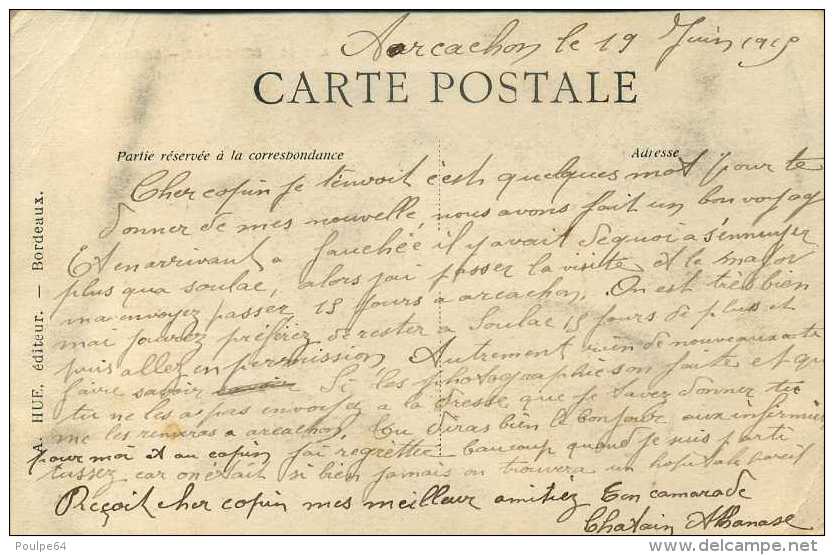 Arcachon le 19 Juin 1915
CARTE POSTALE
Partie réservée à la correspondance
Adresse
A. HUE, éditeur. — Bordeaux.
Cher copin je t'envoit c'est quelques mot pour te
donner de mes nouvelle, nous avons fait un bon voyag
Et en arrivant a il y avait de quoi a s'ennuyer
plus qua soulac, alors jai passer la visite et le major
ma envoyez passer 15 jours a arcachon. On est très bien
mai jourdez préférez de rester a Soulac 15 jours de plus et
puis aller en permission Autrement rien de nouveaux a te
faire savoir Si les photographies son faite et qu
tu ne les as pas envoyez a la dresse que je tavez donner tu
me les renveras a arcachon. Tu diras bien le bonjour aux infirmier
pour moi et au copin jai regrettee beaucoup quand je suis parti
tussez car on était si bien jamais on trouvera un hopitale pareil
Reçoit cher copin mes meilleur amitiez Ton camarade
Chatain Athanase
Poulpe64
www.delcampe.net